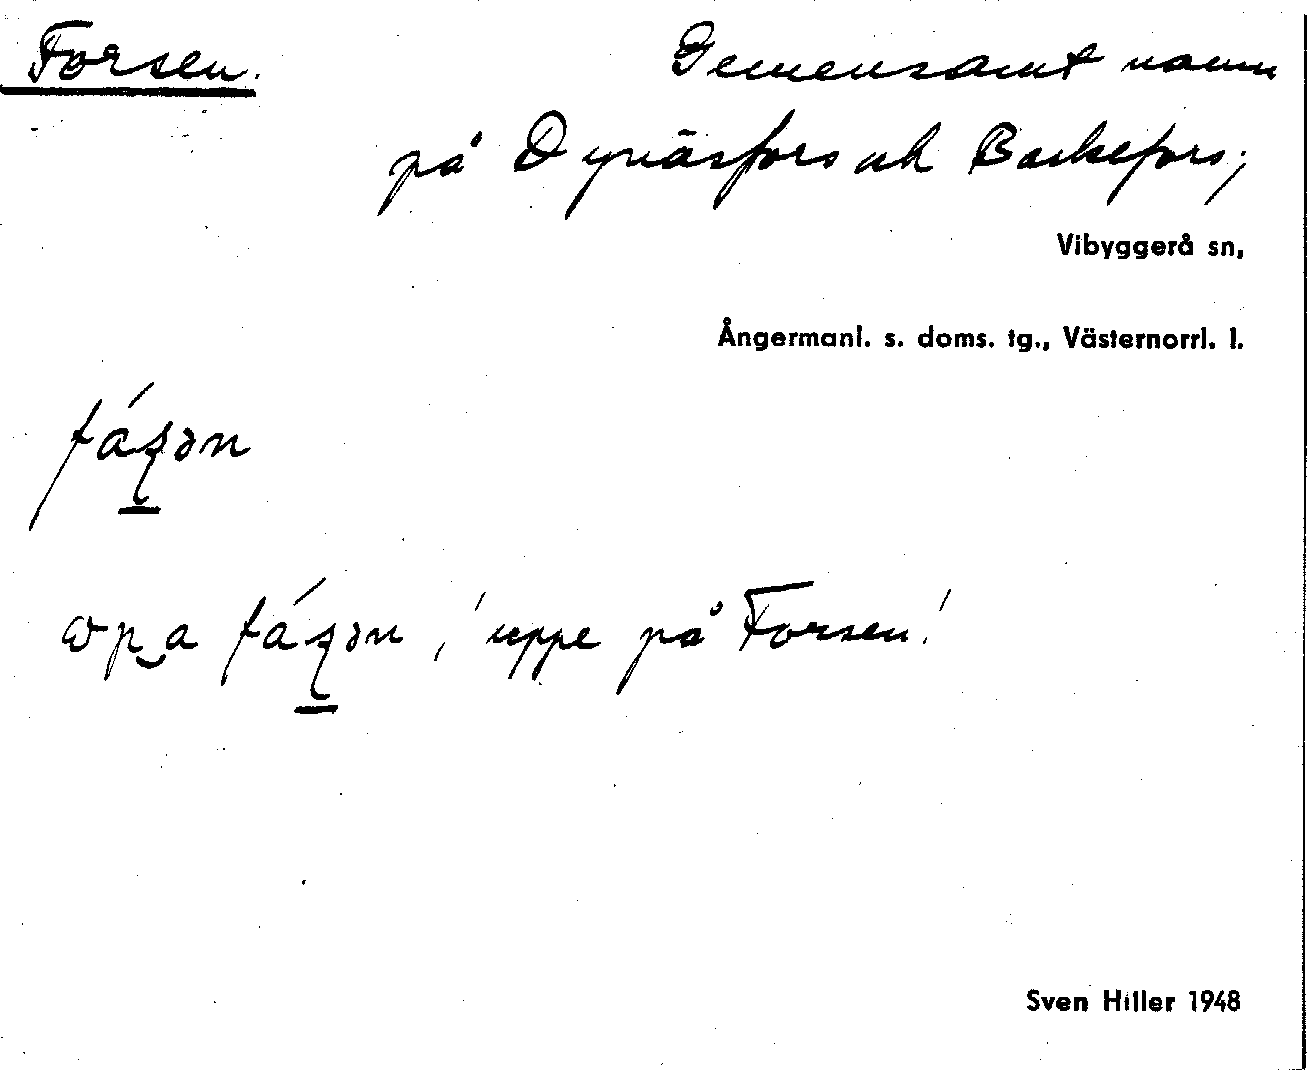 Forsen.
Gemensamt namn
på Dynäsfors och Backefors;
Vibyggerå sn,
Ångermanl. s. doms. tg., Västernorrl. l.
fáʂən
fáʂən, 'uppe på Forsen'.
Sven Hiller 1948